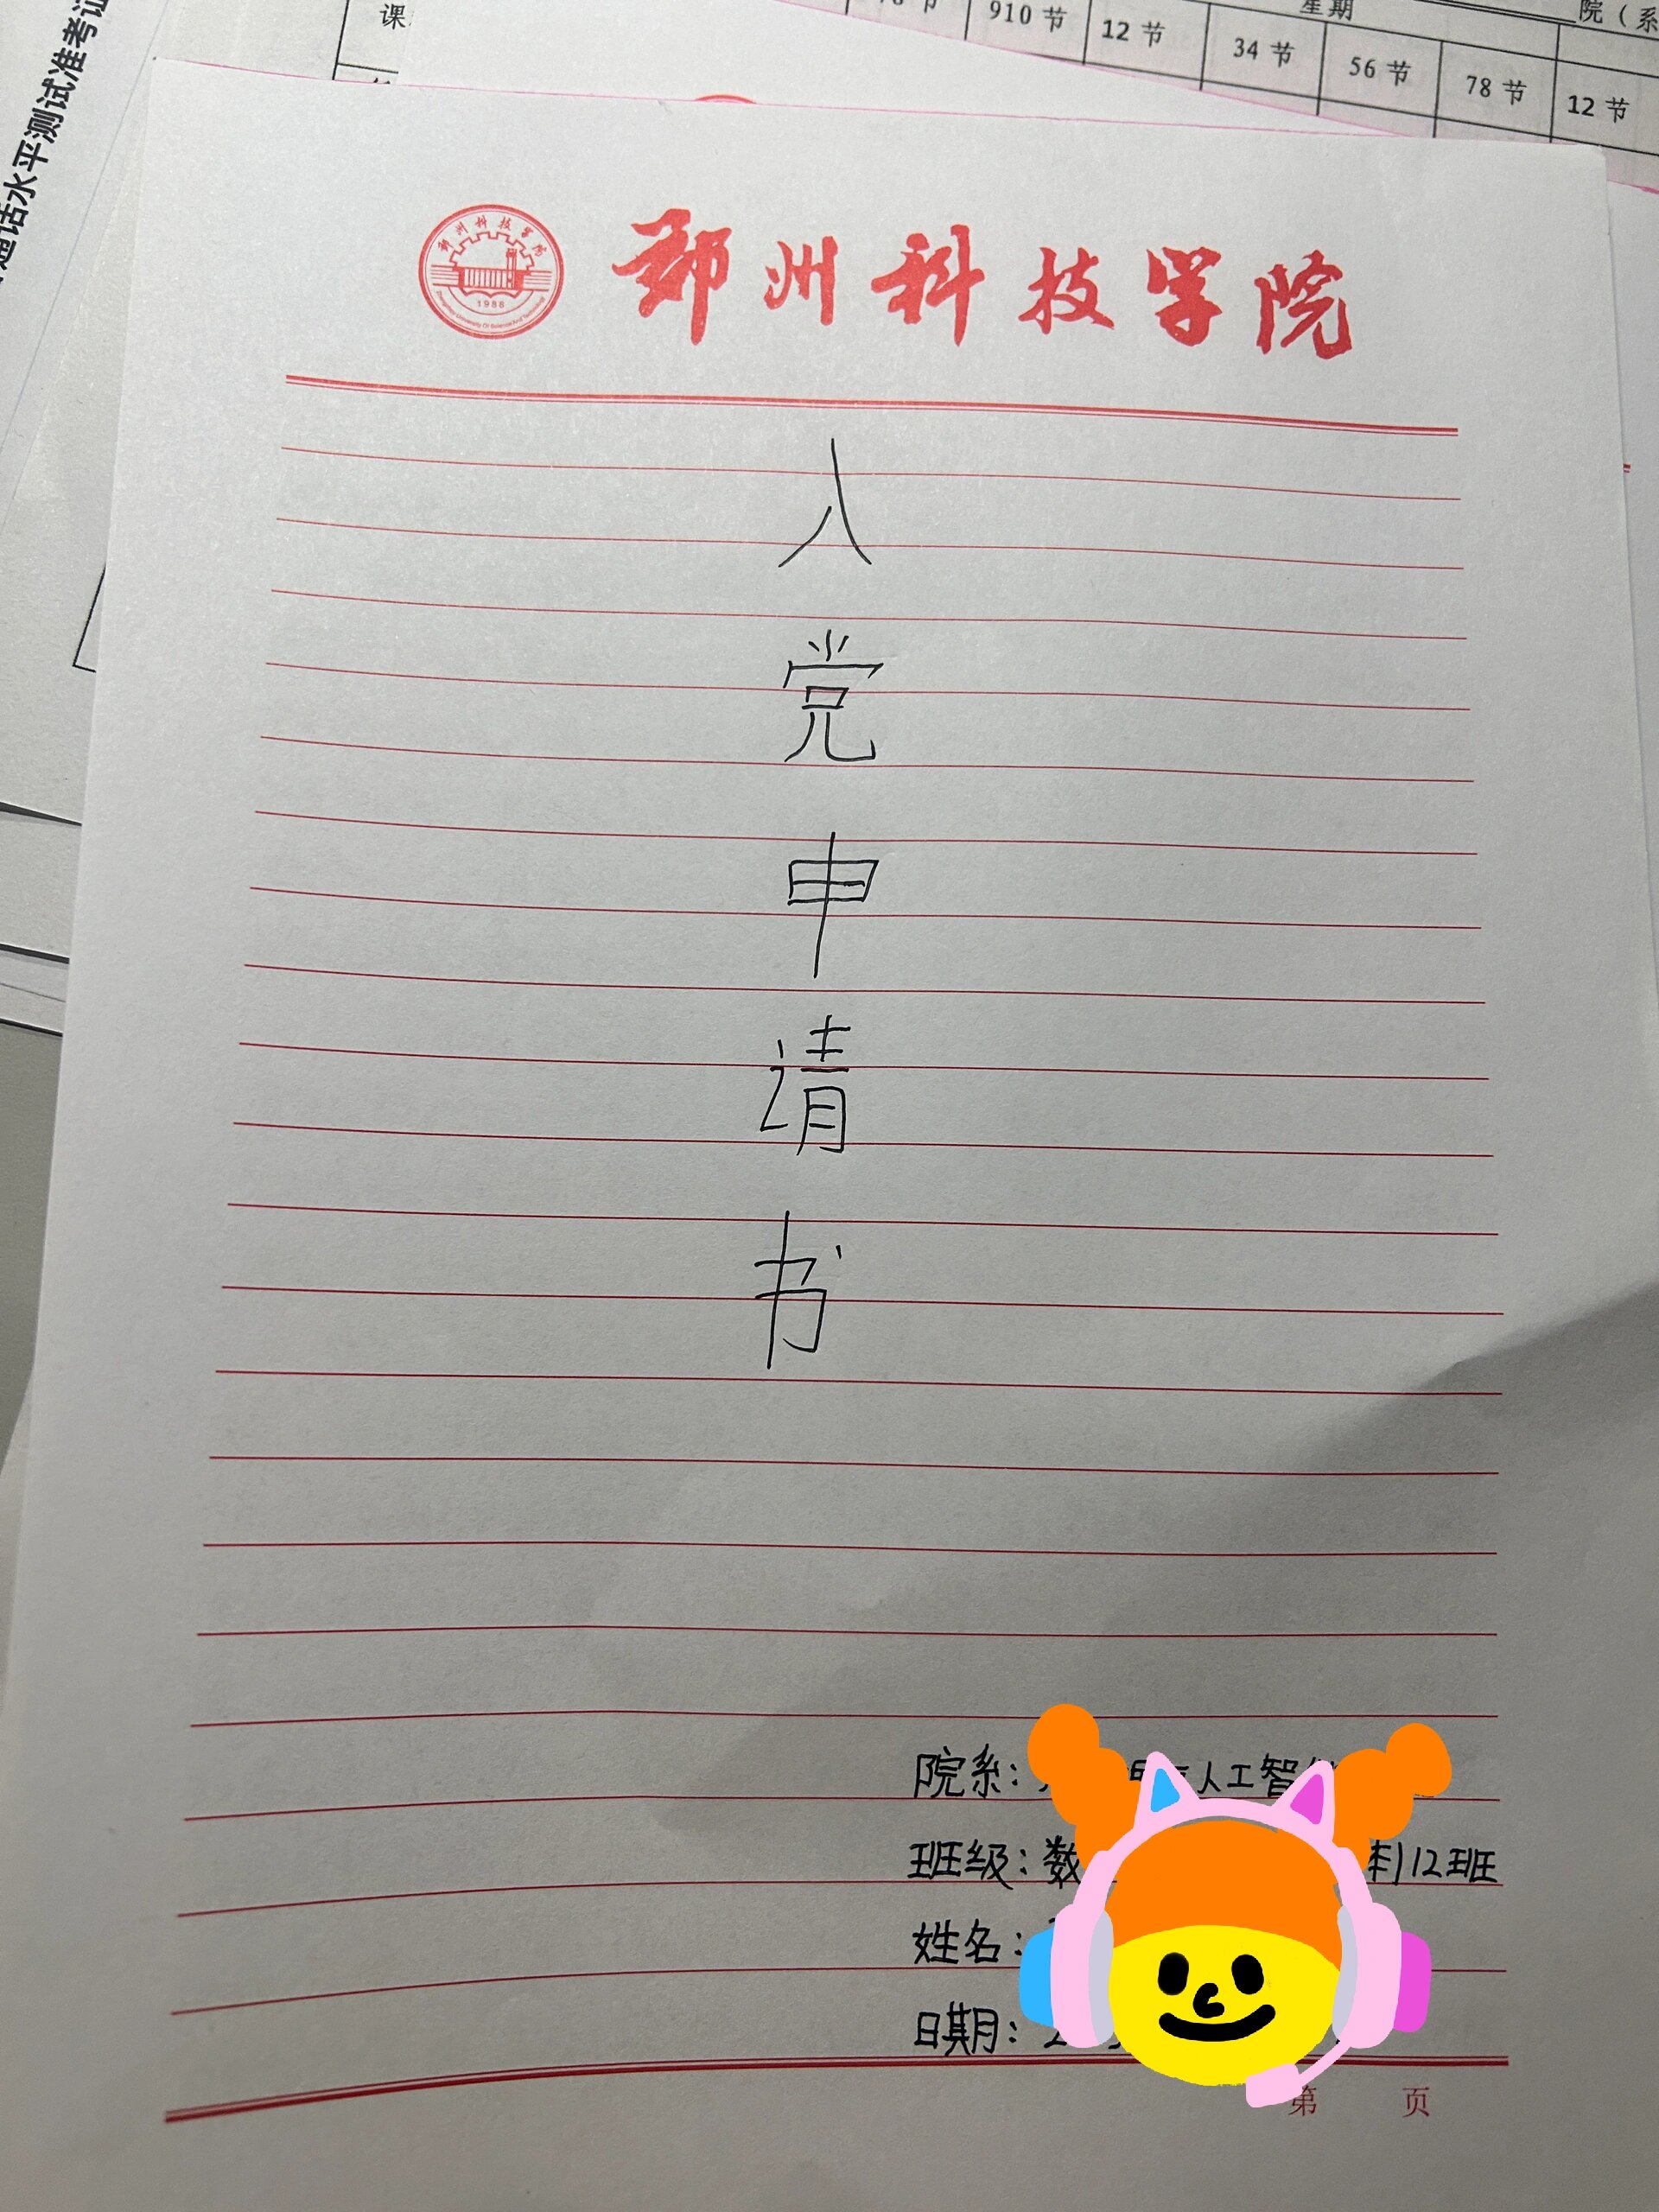 课
910 节
12 节
34 节
56 节
78 节
12 节
星期
院（系
话水平测试准考证
郑州科技学院
1988
郑州科技学院
入
党
申
请
书
院系: 人工智
班级: 数 本112班
姓名:
日期:
第 页